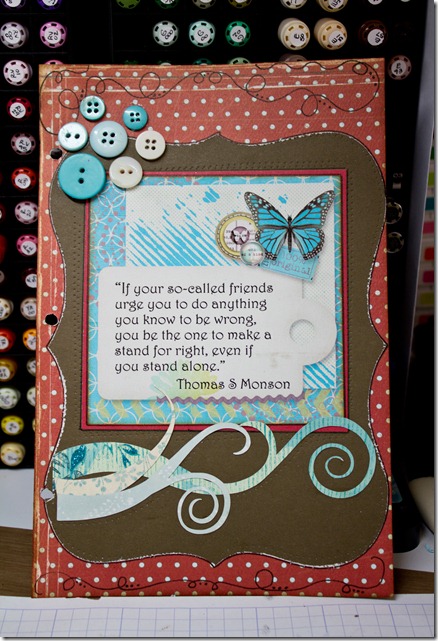 “If your so-called friends
urge you to do anything
you know to be wrong,
you be the one to make a
stand for right, even if
you stand alone.”
Thomas S Monson